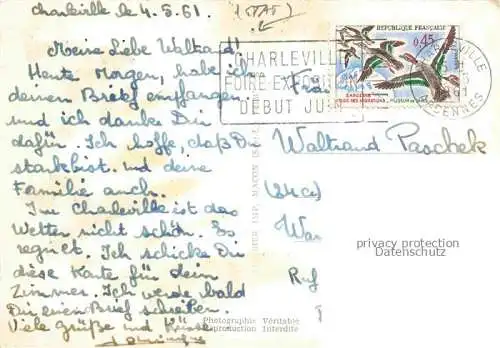 Charleville le 4.5.61.
Meine Liebe Waltraud!
Heute Morgen, habe ich
deinen Brief empfangen
und ich danke Dir
dafür. Ich hoffe, daß Du
stark bist. und deine
Familie auch.
In Charleville ist das
Wetter nicht schön. Es
regnet. Ich schicke Dir
diese Karte für dein
Zimmer. Ich werde bald
Dir einen Brief schreiben.
Viele Grüße und Küsse
CHARLEVILLE
FOIRE EX
DEBUT JU
REPUBLIQUE FRANÇAISE
0,45
ETUDE DES MIGRATIONS
Waltraud Paschek
Wa
Ruf
privacy protection
Datenschutz
Photographie Véritable
Reproduction Interdite